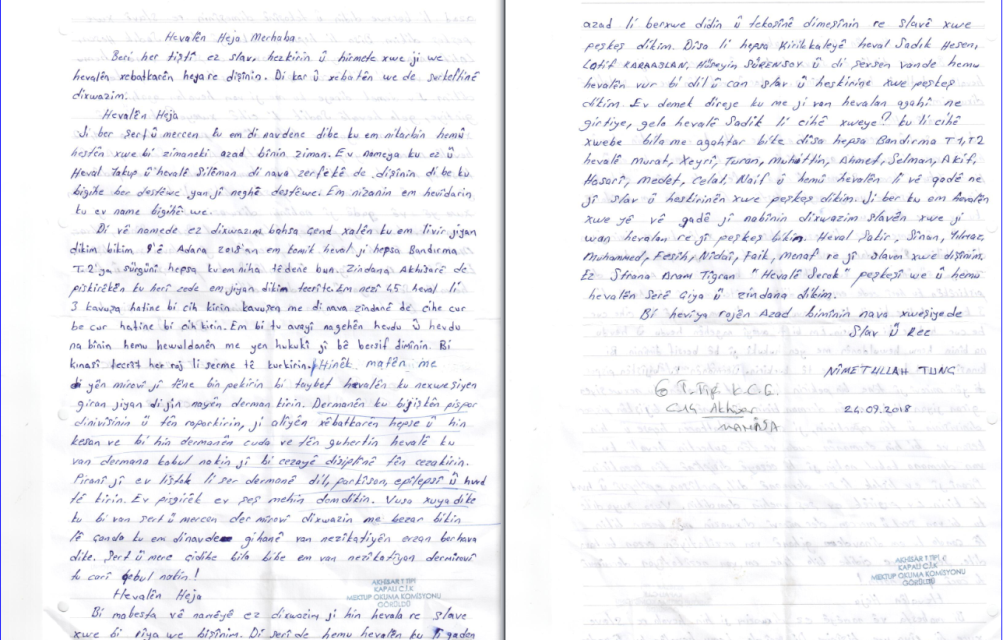 Hevalên Heja Merhaba
Beri her tiştî ez slav, hezkirin û hirmete xwe ji we
hevalên xebatkarên heja re dişînin. Di kar û xebatên we de serkeftinê
dixwazim.
Hevalên Heja
Ji ber şert û mercen ku em di navdene dibe ku em nikarbin hemû
hestên xwe bi zimaneki azad bînin ziman. Ev nameya ku ez û
Heval Yakup û hevalê Silêman di nava zerfekê de dişînin dibe ku
bigihe ber destêwe yan jî neghê destêwe. Em nizanin em hevîdarin
ku ev name bigihê we.
Di vê namede ez dixwazim bahsa çend xalên ku em livir jiyan
dikim bikim 9'ê Adara 2018'an em komik heval ji hepsa Bandırma
T-2'ya sürgünî hepsa ku em niha têdene bun. Zindana Akhisarê de
pisgirêkên ku herî zede em jiyan dikim tecrîte. Em nezî 45 heval li
3 kavuşa hatine bi cih kirin kavuşen me di nava zindanê de cihe cur
be cur hatine bi cih kirin. Em bi tu avayî nagehên hevdu û hevdu
na bînin hemu hewuldanên me yen hukuki jî bê bersif dimînin. Bi
kinasî tecrît her roj li serme tê kurkirin. Hinek mafên me
yên mirovî jî têne bin pêkirin bi taybet hevalên ku nexweşiyen
giran jiyan dijin nayên derman kirin. Dermanên ku bijişkên pispor
dinivîsinin û tên raporkirin, ji aliyên xebatkarên hepse û hin
kesan ve bi hin dermanên cuda ve tên guhertin hevalê ku
van dermana kabul nakin jî bi cezayê disiplinê tên cezakirin.
Piranî jî ev lîstok li ser dermanê dil, parkîson, epilepsî û hwd
tê kirin. Ev pisgirêk ev şeş mehin domdikin. Vusa xuya dike
ku bi van şert û mercen der mirovî dixwazin me bezar bikin
lê çanda ku em dinavde gihanê van nezîkatiyên erzan berhava
dike. Şert û merc çidibe bila bibe em van nezîkatiyan dermirovî
tu carî qebul nakin!
Hevalên Heja
Bi mabesta vê namêye ez dixwazim ji hin hevala re slave
xwe bi rîya we bişînim. Di serî de hemu hevalên ku li qaden
AKHİSAR T TİPİ
KAPALI C.İ.K
MEKTUP OKUMA KOMİSYONU
GÖRÜLDÜ
azad li berxwe didin û tekoşînê dimeşînin re slavê xwe
peşkeş dikim. Dîsa li hepsa Kirikkaleyê heval Sadık Hesen,
Lotif KARAASLAN, Hüseyin SÜRENSOY û di şexsen vande hemu
hevalên vur bi dil û can slav û heskirine xwe peşkeş
dikim. Ev demek direje ku me ji van hevalan agahî ne
girtiye, gelo hevalê Sadik li cihê xweye? ku li cihê
xwebe bila me agahtar bike dîsa hepsa Bandırma T1,T2
hevalê Murat, Xeyrî, Turan, Muhittin, Ahmet, Selman, Akif,
Hasari, Medet, Celal, Naif û hemû hevalên li vê qadê ne
jî slav û heskirinên xwe peşkeş dikim. Ji ber ku em hevalên
xwe yê vê qadê jî nabînin dixwazim slavên xwe ji
wan hevalan re jî peşkeş bikin. Heval Sakir, Sinan, Yılmaz,
Muhammed, Fesih, Nidaî, Faik, Menaf re jî slavên xwe dişînim.
Ez Strana Aram Tîgran "Hevalê Serok" peşkeşî we û hemu
hevalên Serê Çiya û zindana dikim.
Bi hevîya rojên Azad bimînin nava xweşiyede
Slav û Rêz
NİMETULLAH TUNÇ
T Tipi K.C.C.
Akhisar
MANİSA
24.09.2018
AKHİSAR T TİPİ
KAPALI C.İ.K
MEKTUP OKUMA KOMİSYONU
GÖRÜLDÜ